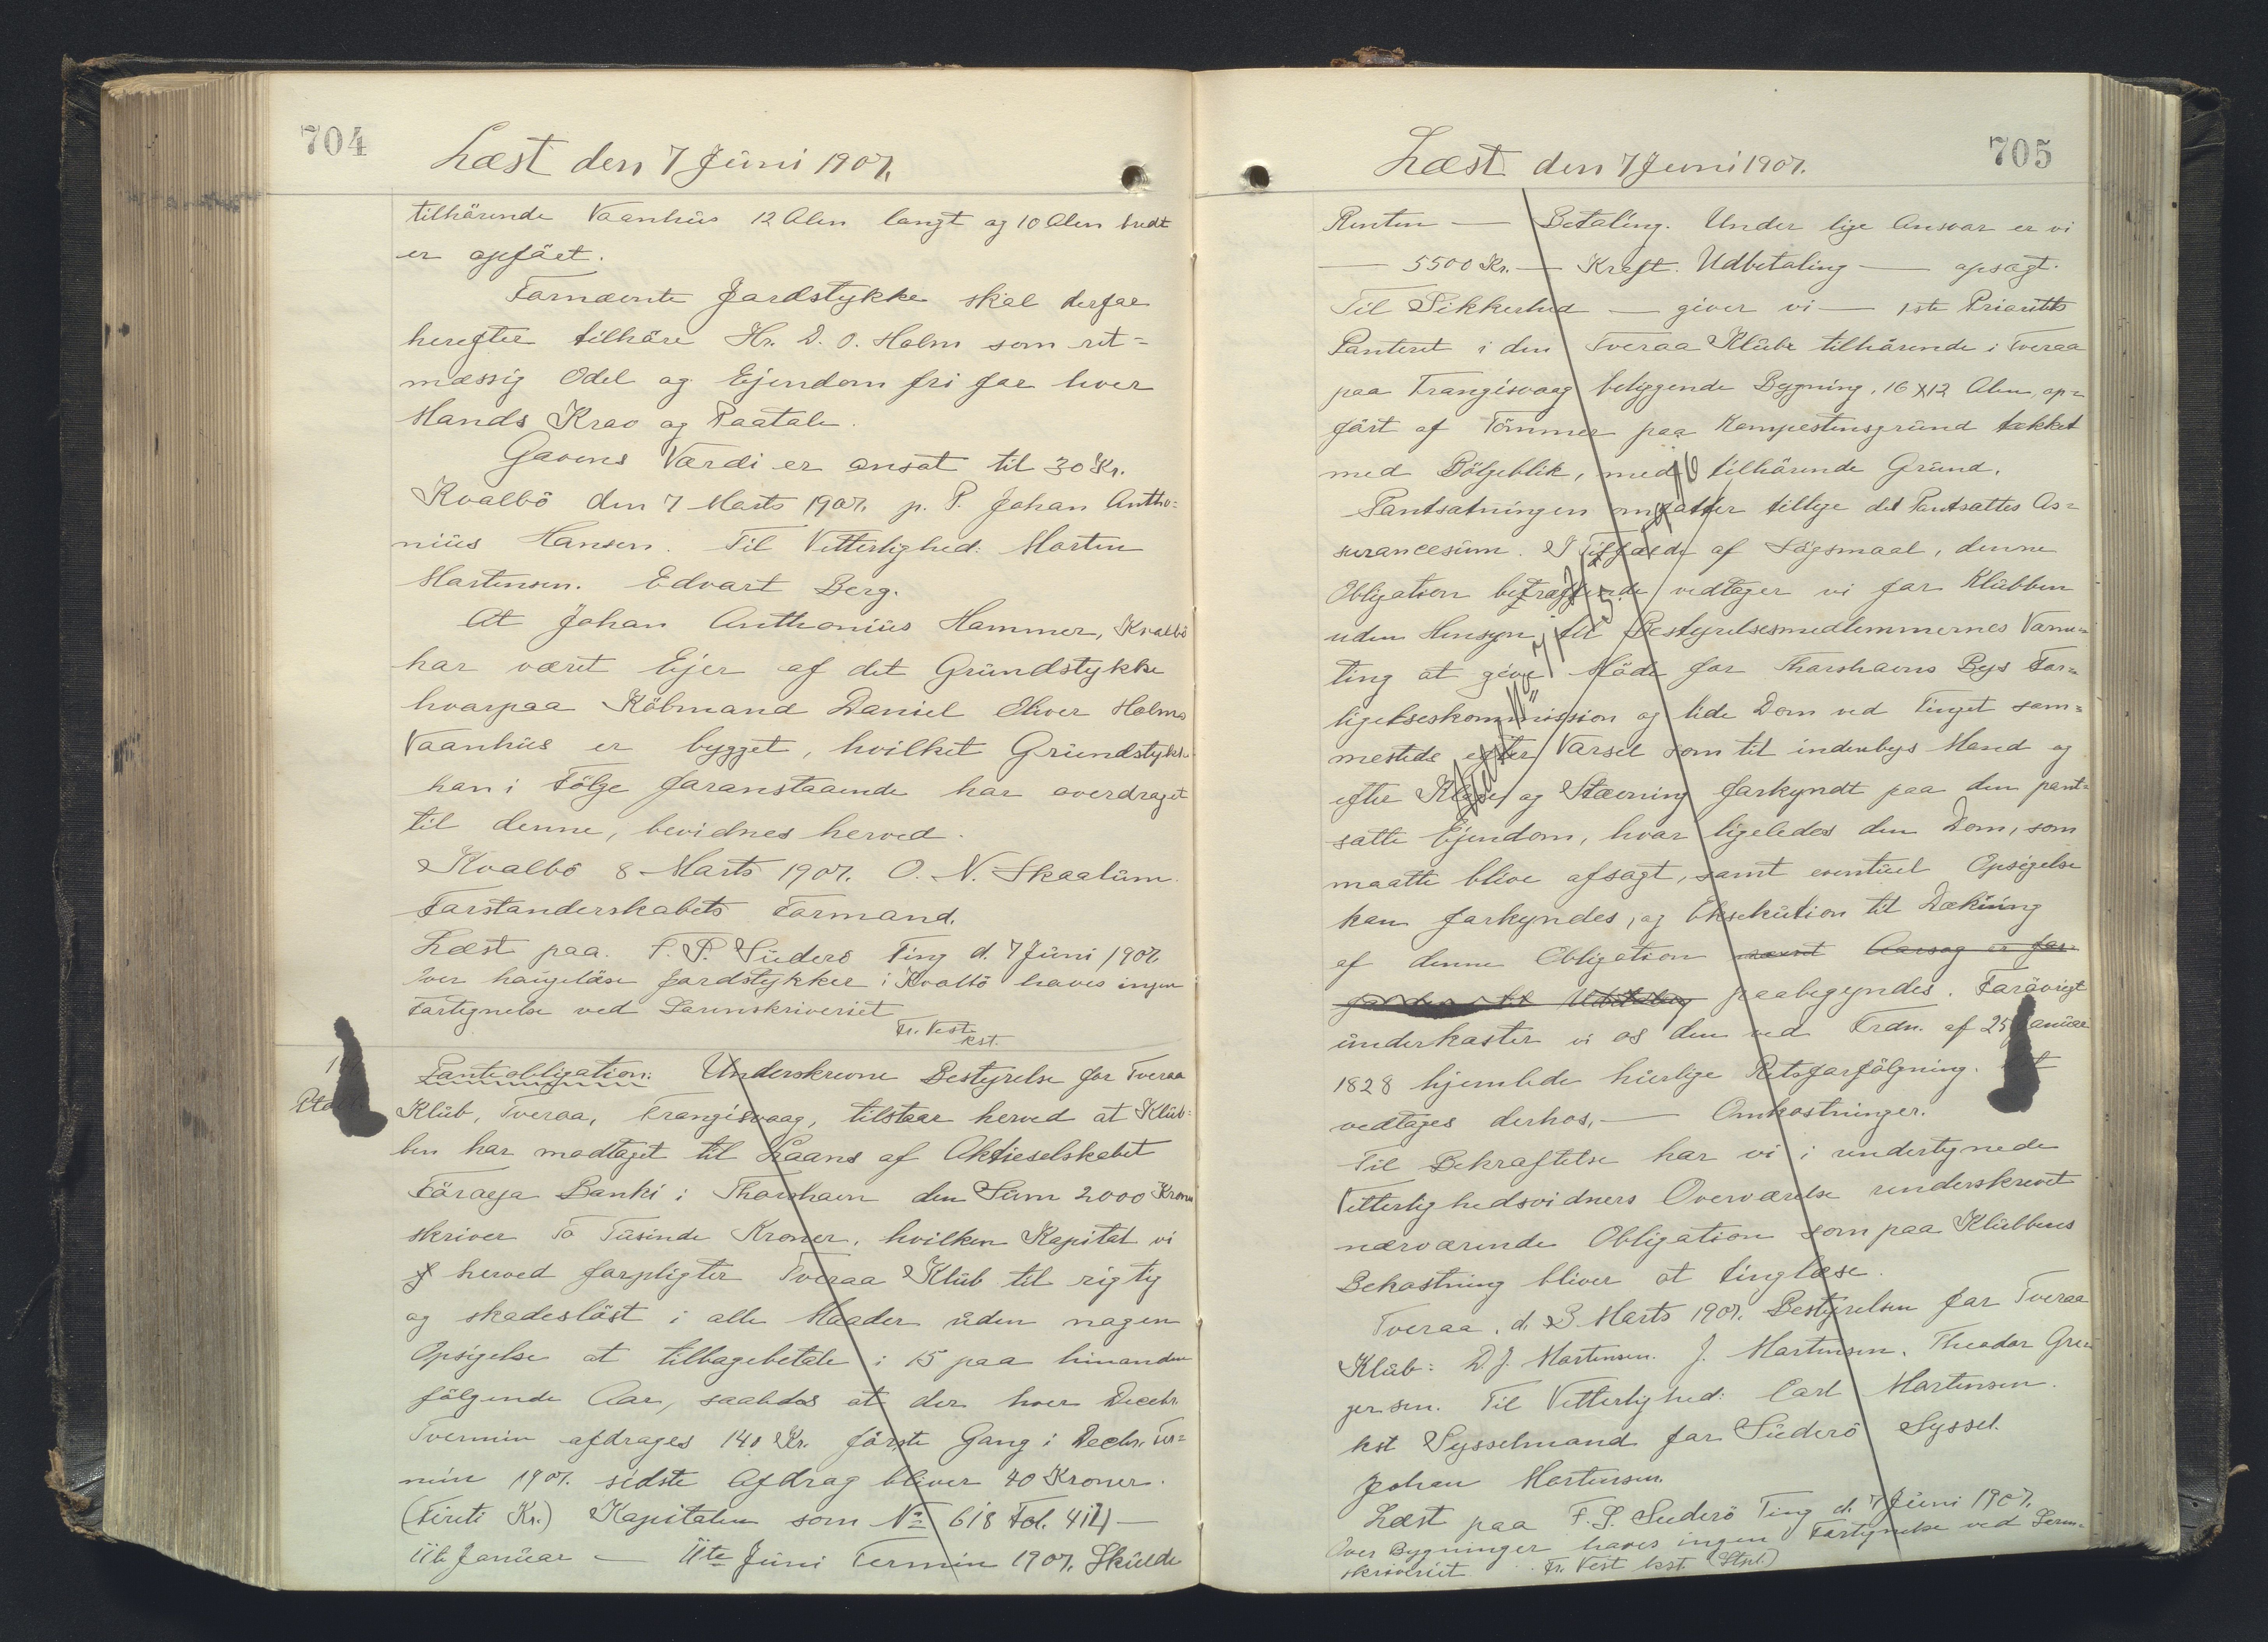 704
Læst den 7 Júni 1907.
tilhörende Vaanhús 12 Alen langt og 10 Alen bredt
er opfört.
Fornævnte Jordstykke skal derfor
herefter tilhöre Hr. D. O. Holm som ret=
mæssig Odel og Ejendom fri for hver
Mands Krav og Paatale.
Gavens Værdi er ansat til 30 Kr.
Kvalbö den 7 Marts 1907. p. P. Johan Antho=
niús Hansen. Til Vitterlighed: Morten
Mortensen. Edvart Berg.
At Johan Anthoniús Hammer, Kvalbö
har været Ejer af det Grúndstykke
hvorpaa Köbmand Daniel Oliver Holms
Vaanhús er bygget, hvilket Grúndstykke
han i Fölge foranstaaende har overdraget
til denne, bevidnes herved.
Kvalbö 8 Marts 1907. O. N. Skaalúm.
Forstanderskabets Formand.
Læst paa F. P. Súderö Ting d. 7 Júni 1907.
Over haugelöse Jordstykker i Kvalbö haves ingen
Fortegnelse ved Sorenskriveriet
Fr. Vest
kst.
Panteobligation: Underskrevne Bestyrelse for Tveraa
Klúb, Tveraa, Trangisvaag, tilstaar herved at Klúb=
ben har modtaget til Laans af Aktieselskabet
Föroya Banki i Thorshavn den Súm 2000 Kroner
skriver To Túsinde Kroner, hvilken Kapital vi
herved forpligter Tveraa Klúb til rigtig
og skadeslöst i alle Maader úden nogen
Opsigelse at tilbagebetale i 15 paa hinanden
fölgende Aar, saaledes at der hver Decebr.
Tvermin afdrages 140 Kr. förste Gang i Decbr. Ter=
min 1907. sidste Afdrag bliver 40 Kroner.
(Firiti Kr.) Kapitalen som No 618 Fol. 411) —
11te Janúar — 11te Júni Termin 1907. Skúlde
705
Læst den 7 Juni 1907.
Renten — Betaling. Under lige Ansvar er vi
— 5500 Kr. — Kraft. Udbetaling — opsagt.
Til Sikkerhed — giver vi — 1ste Prioritets
Panteret i den Tveraa Klúbb tilhörende i Tveraa
paa Trangisvaag beliggende Bygning, 16 x 12 Alen, op=
fört af Tömmer paa Kampestensgrúnd takket
med Bölgeblik, med tilhörende Grúnd.
Pantsætningen omfatter tillige det Pantsattes As=
surancesúm. I Tilfælde af Sögsmaal, denne
Obligation betræffende vedtager vi for Klúbben
uden Hensyn til Bestyrelsesmedlemmernes Værne=
ting at give Möde for Thorshavns Bys For=
ligelseskommission og lide Dom ved Tinget sam=
mesteds efter Varsel som til indenbys Mand og
efter Klage og Stævning forkyndt paa den pant=
satte Ejendom, hvor ligeledes den Dom, som
maatte blive afsagt, samt eventúel Opsigelse
kan forkyndes, og Eksekútion til Dækning
af denne Obligation
paabegyndes. Forövrigt
únderkaster vi os den ved Frdn. af 25 Janúar
1828 hjemlede húrtige Retsforfölgning.
vedtages derhos, — Omkostninger.
Til Bekræftelse har vi i undertegnede
Vitterlighedsvidners Overværelse underskrevet
nærværende Obligation som paa Klúbbens
Bekostning bliver at tinglæse.
Tveraa, d. 8 Marts 1907. Bestyrelsen for Tveraa
Klúb: D. J. Mortensen. J. Mortensen. Theodor Gre=
gersen. Til Vitterlighed: Carl Mortensen.
kst Sysselmand for Súderö Syssel.
Johan Mortensen.
Læst paa F. P. Suderö Ting d. 7 Júni 1907.
Over Bygninger haves ingen Fortegnelse ved Soren=
skriveriet. Fr. Vest kst. (Stpl.)